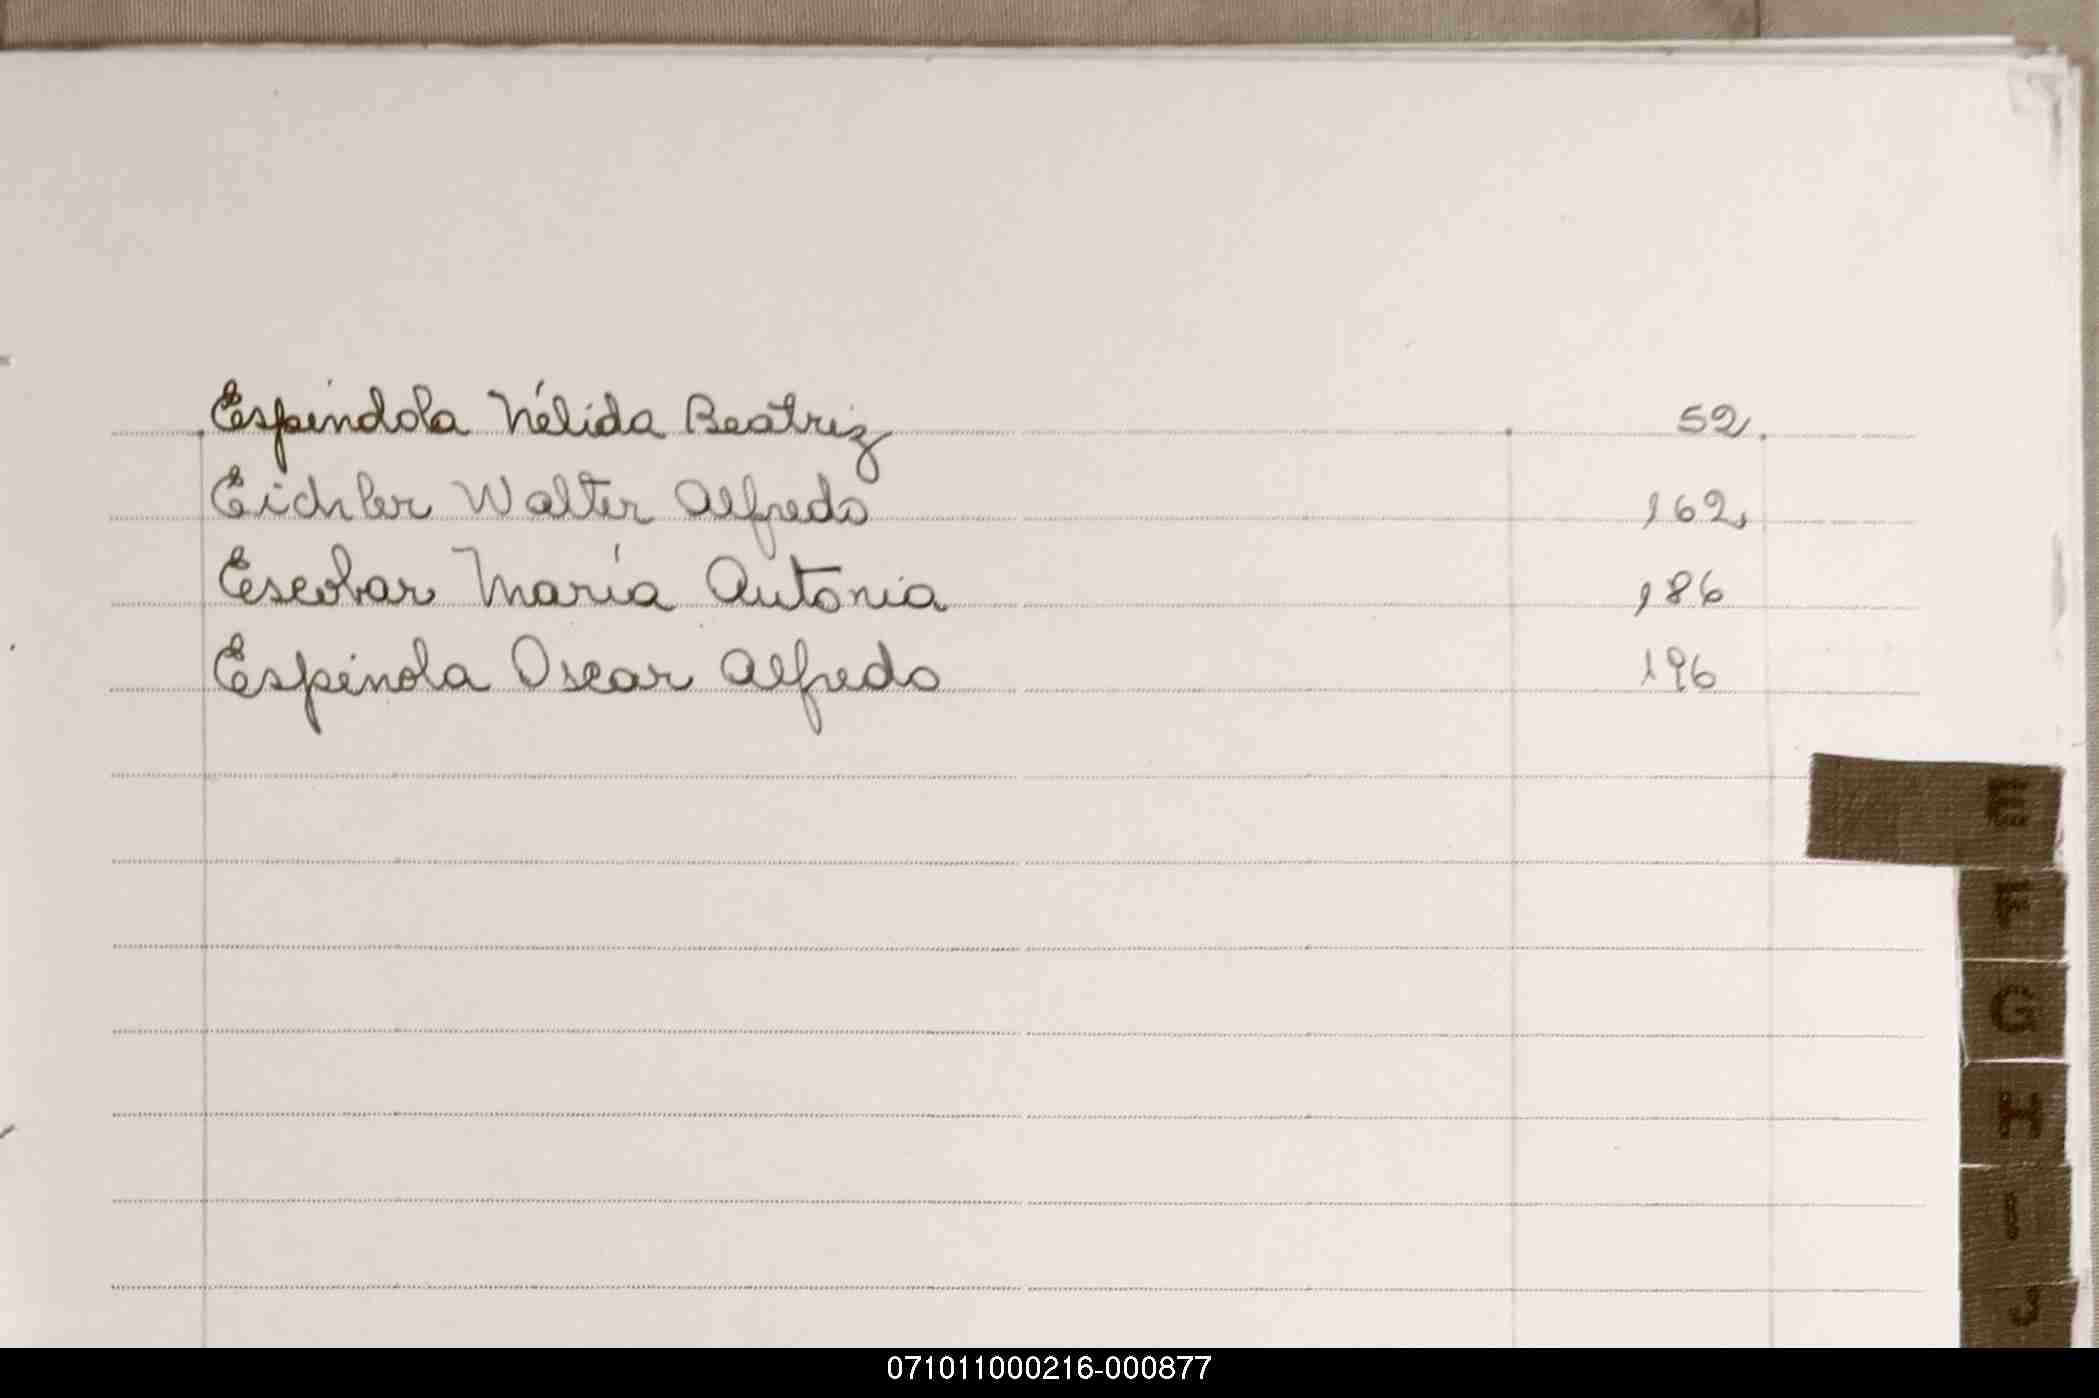 Espíndola Nélida Beatriz 52
Eichler Walter Alfredo 162
Escobar María Antonia 186
Espínola Oscar Alfredo 196
E
F
G
H
I
J
071011000216-000877